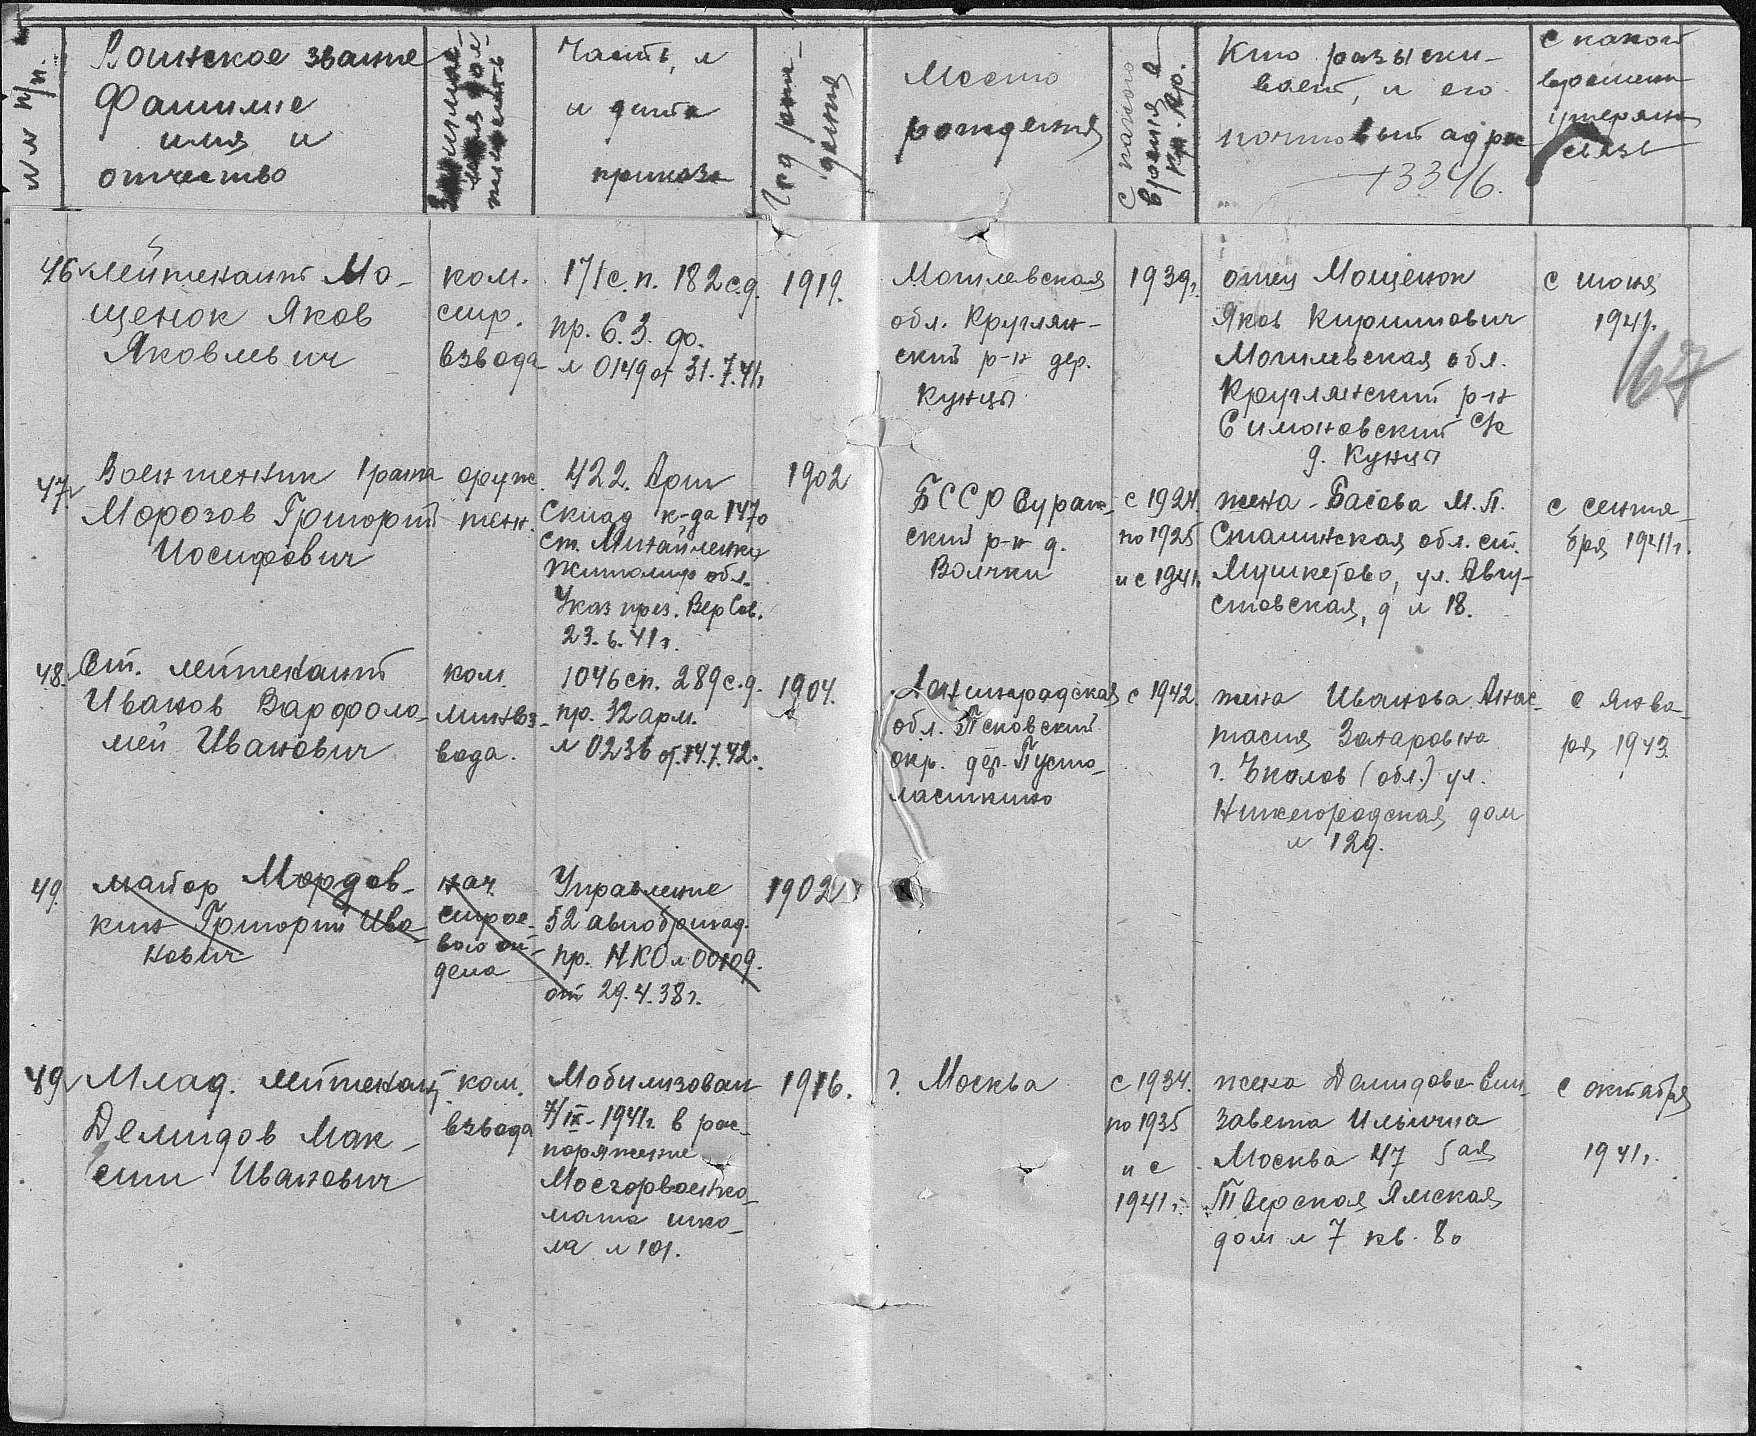 №№ п/п.
Воинское звание
Фамилие
имя и
отчество
Занимае-
мая дол-
жность
Часть, №
и дата
приказа
Год рож-
дения
Место
рождения
С какого
время в
Кр. Ар.
Кто разыски-
вает, и его
почтовый адрес
13346.
с какого
времени
утеряна
связь
46 лейтенант Мо-
щенок Яков
Яковлевич
ком.
стр.
взвода
171 с.п. 182 с.д.
пр. С.З. фр.
№ 0149 от 31.7.41г.
1919.
Могилевская
обл. Круглян-
ский р-н дер.
Кунцы
1939г.
отец Мощенок
Яков Кирилович
Могилевская обл.
Круглянский р-н
Симоновский с/с
д. Кунцы
с июня
1941г.
47. Воентехник 1 ранга
Морозов Григорий
Иосифович
оруж.
техн.
422. Арт.
Склад к-да 1470
ст. Михайленки
Житомир обл.
Указ през. Вер Сов.
23.6.41г.
1902
БССР Сураж-
ский р-н д.
Волчки
с 1924
по 1925
и с 1941г.
жена - Басова М.П.
Сталинская обл. ст.
Мушкетово, ул. Авгу-
стовская, д № 18.
с сентя-
бря 1941г.
48. Ст. лейтенант
Иванов Варфоло-
мей Иванович
ком.
минвз-
вода.
1046 сп. 289 с.д.
пр. 32 арм.
№ 0236 от 14.7.42.
1904.
Ленинградская
обл. Псковский
окр. дер. Пусто-
ласткино
с 1942
жена Иванова Анас-
тасия Захаровна
г. Чкалов (обл.) ул.
Нижегородская дом
№ 129.
с янва-
ря 1943
49. майор Мордов-
кин Григорий Ива-
нович
нач.
строе-
вого от-
дела
Управление
52 авиобригад.
пр. НКО № 00109.
от 29.4.38г.
1902
49 Млад. лейтенант
Демидов Мак-
сим Иванович
ком.
взвода
Мобилизован
7/IX-1941г. в рас-
поряжение
Мосгорвоенко-
мата шко-
ла № 101.
1916.
г. Москва
с 1934.
по 1935
и с
1941г.
жена Демидова Ели-
завета Ильична
Москва 47 5ая
Тверская Ямская
дом № 7 кв. 80
с октября
1941г.